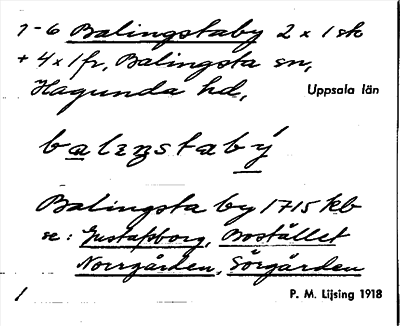 1-6 Balingstaby 2 x 1 sk
+ 4 x 1 fr, Balingsta sn,
Hagunda hd, Uppsala län
balɩŋstabý
Balingsta by 1715 kb
se: Gustafsborg, Bostället
Norrgården, Sörgården
1 P. M. Lijsing 1918